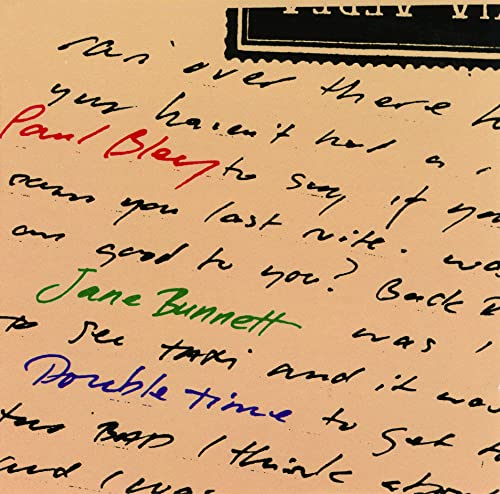 over there h
you haven't had a
Paul Bley to say if yo
you last nite. wa
good to you? Back
Jane Bunnett was I
to see TAXI and it wa
Double time to get to
too BAD I think abo
and I wa